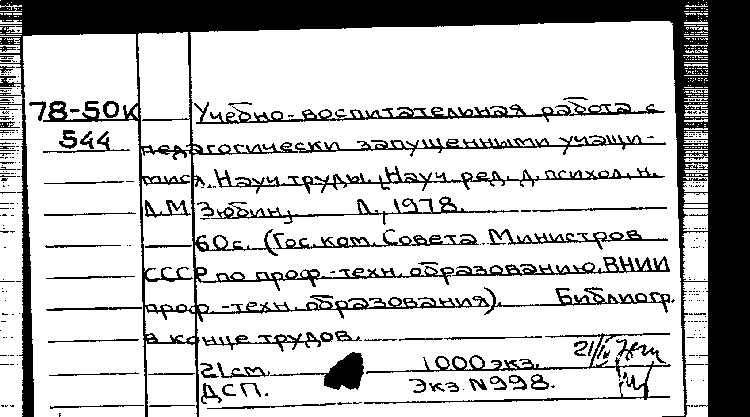 78-50к Учебно-воспитательная работа с
544 педагогически запущенными учащи-
мися. Науч. труды. [Науч. ред. д. психол. н.
Л.М. Зюбин]. Л., 1978.
60с. (Гос. ком. Совета Министров
СССР по проф.-техн. образованию. ВНИИ
проф.-техн. образования). Библиогр.
в конце трудов.
21см. 1000 экз. 21/IV
ДСП. Экз N998.